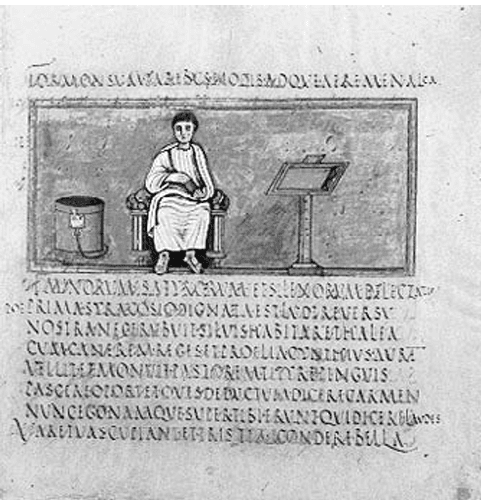 FORMONSUM PARIBUS NODIS ADQUE AERE MENALCA
SATYRORUM ET SILENORUM DELECTATIO
POE PRIMA SYRACOSIO DIGNATA EST LUDERE VERSU
NOSTRA NEC ERUBUIT SILVIS HABITARE THALEA
CUM CANEREM REGES ET PROELIA CYNTHIUS AURE
VELLIT ET MONUIT PASTOREM TITYRE PINGUIS
PASCERE OPORTET OVIS DEDUCTUM DICERE CARMEN
NUNC EGO NAMQUE SUPER TIBI ERUNT QUI DICERE LAUDES
VARE TUAS CUPIANT ET TRISTIA CONDERE BELLA